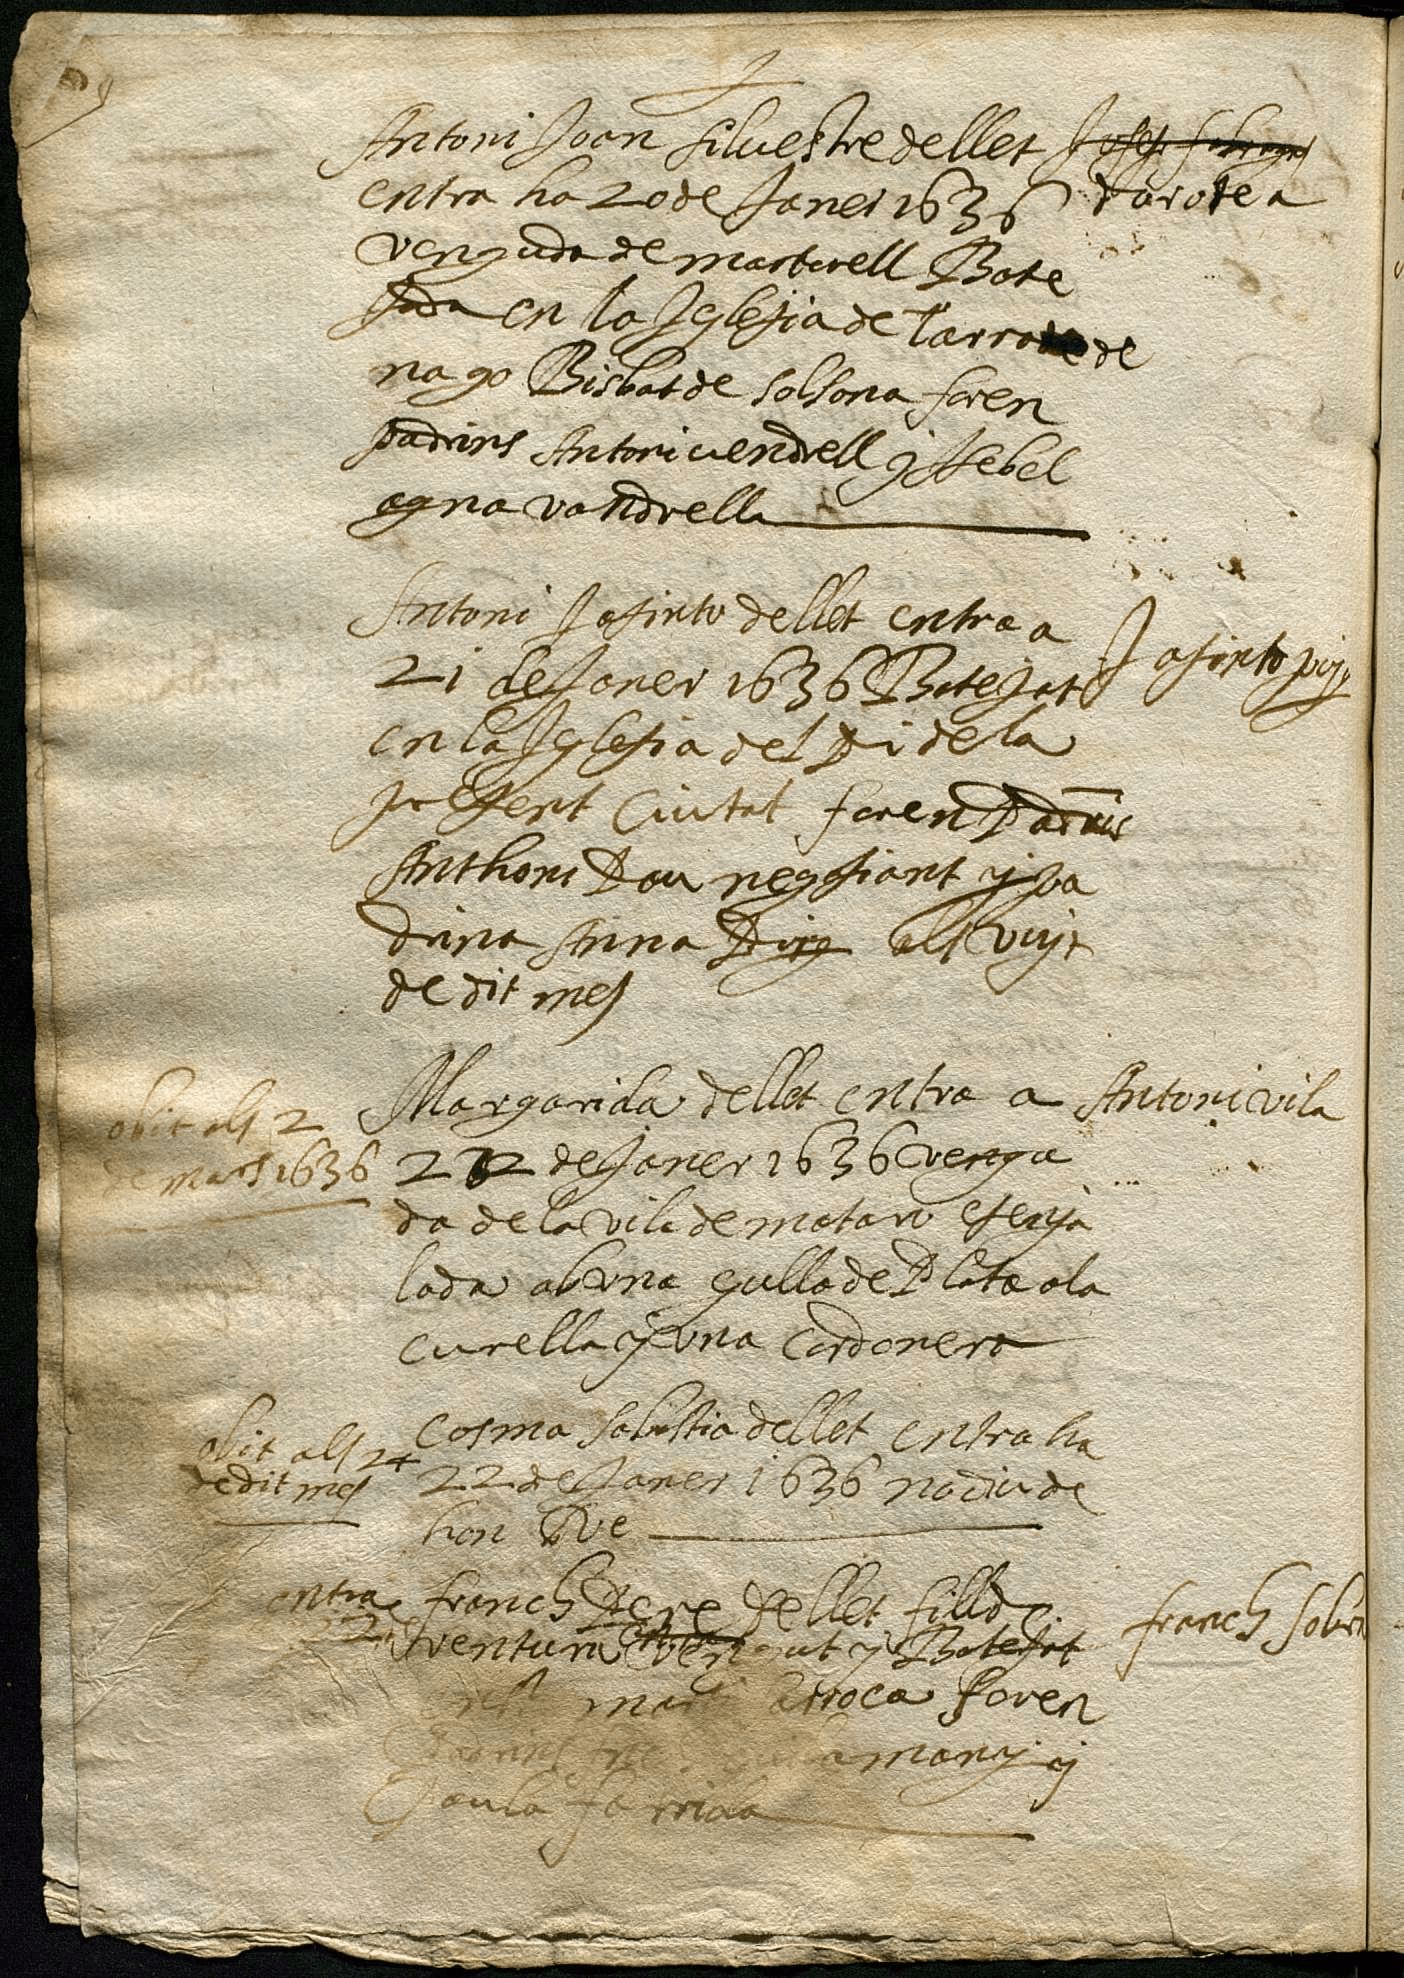 Antoni Joan Siluestre dellet
entra ha 20 de Janer 1636
venguda de martorell Bate
jada en la Iglesia de tarro de
nago Bisbat de Solsona foren
padrins Antoni uendrell y Isebel
agna vandrella
Darotea
Antoni Jasinto dellet entra a
21 de Janer 1636 Batejat
en la Iglesia del Pi de la
present Ciutat foren Padrins
Anthoni Pau negosiant y pa
drina Anna Puig als vuyt
de dit mes
Jasinto puig
obit als 2
de mars 1636
Margarida dellet entra a
22 de Janer 1636 vengu
da de la vila de mataro esenja
lada ab vna gulla de Plata a la
curella y vna Cordonera
Antoni vila
obit als 24
de dit mes
Cosma Sabastia dellet entra ha
22 de Janer 1636 nadiu de
hon Pve
entra
22
franch Pere dellet fill de
ventura vengut y Batejat
marti arroca foren
Padrins many y
Paula farriaa
franch